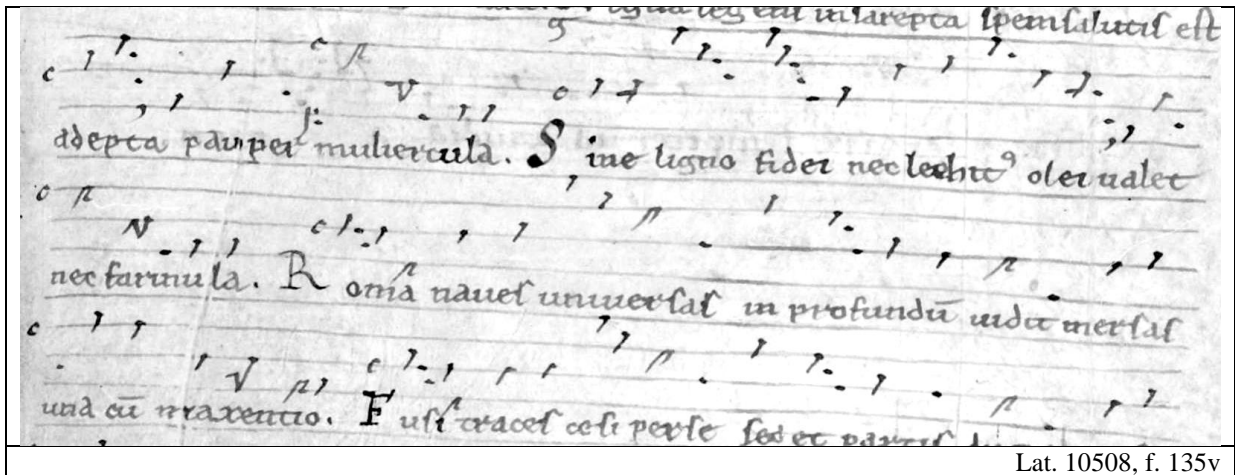 ligna legens insarepta spemsalutis est
adepta pauper muliercula. Sine ligno fidei nec lechitꝰ olei ualet
nec farinula. Roma naues uniuersas in profundū uidit mersas
una cū maxentio. Fusi traces cesi perse sed et partis
Lat. 10508, f. 135v